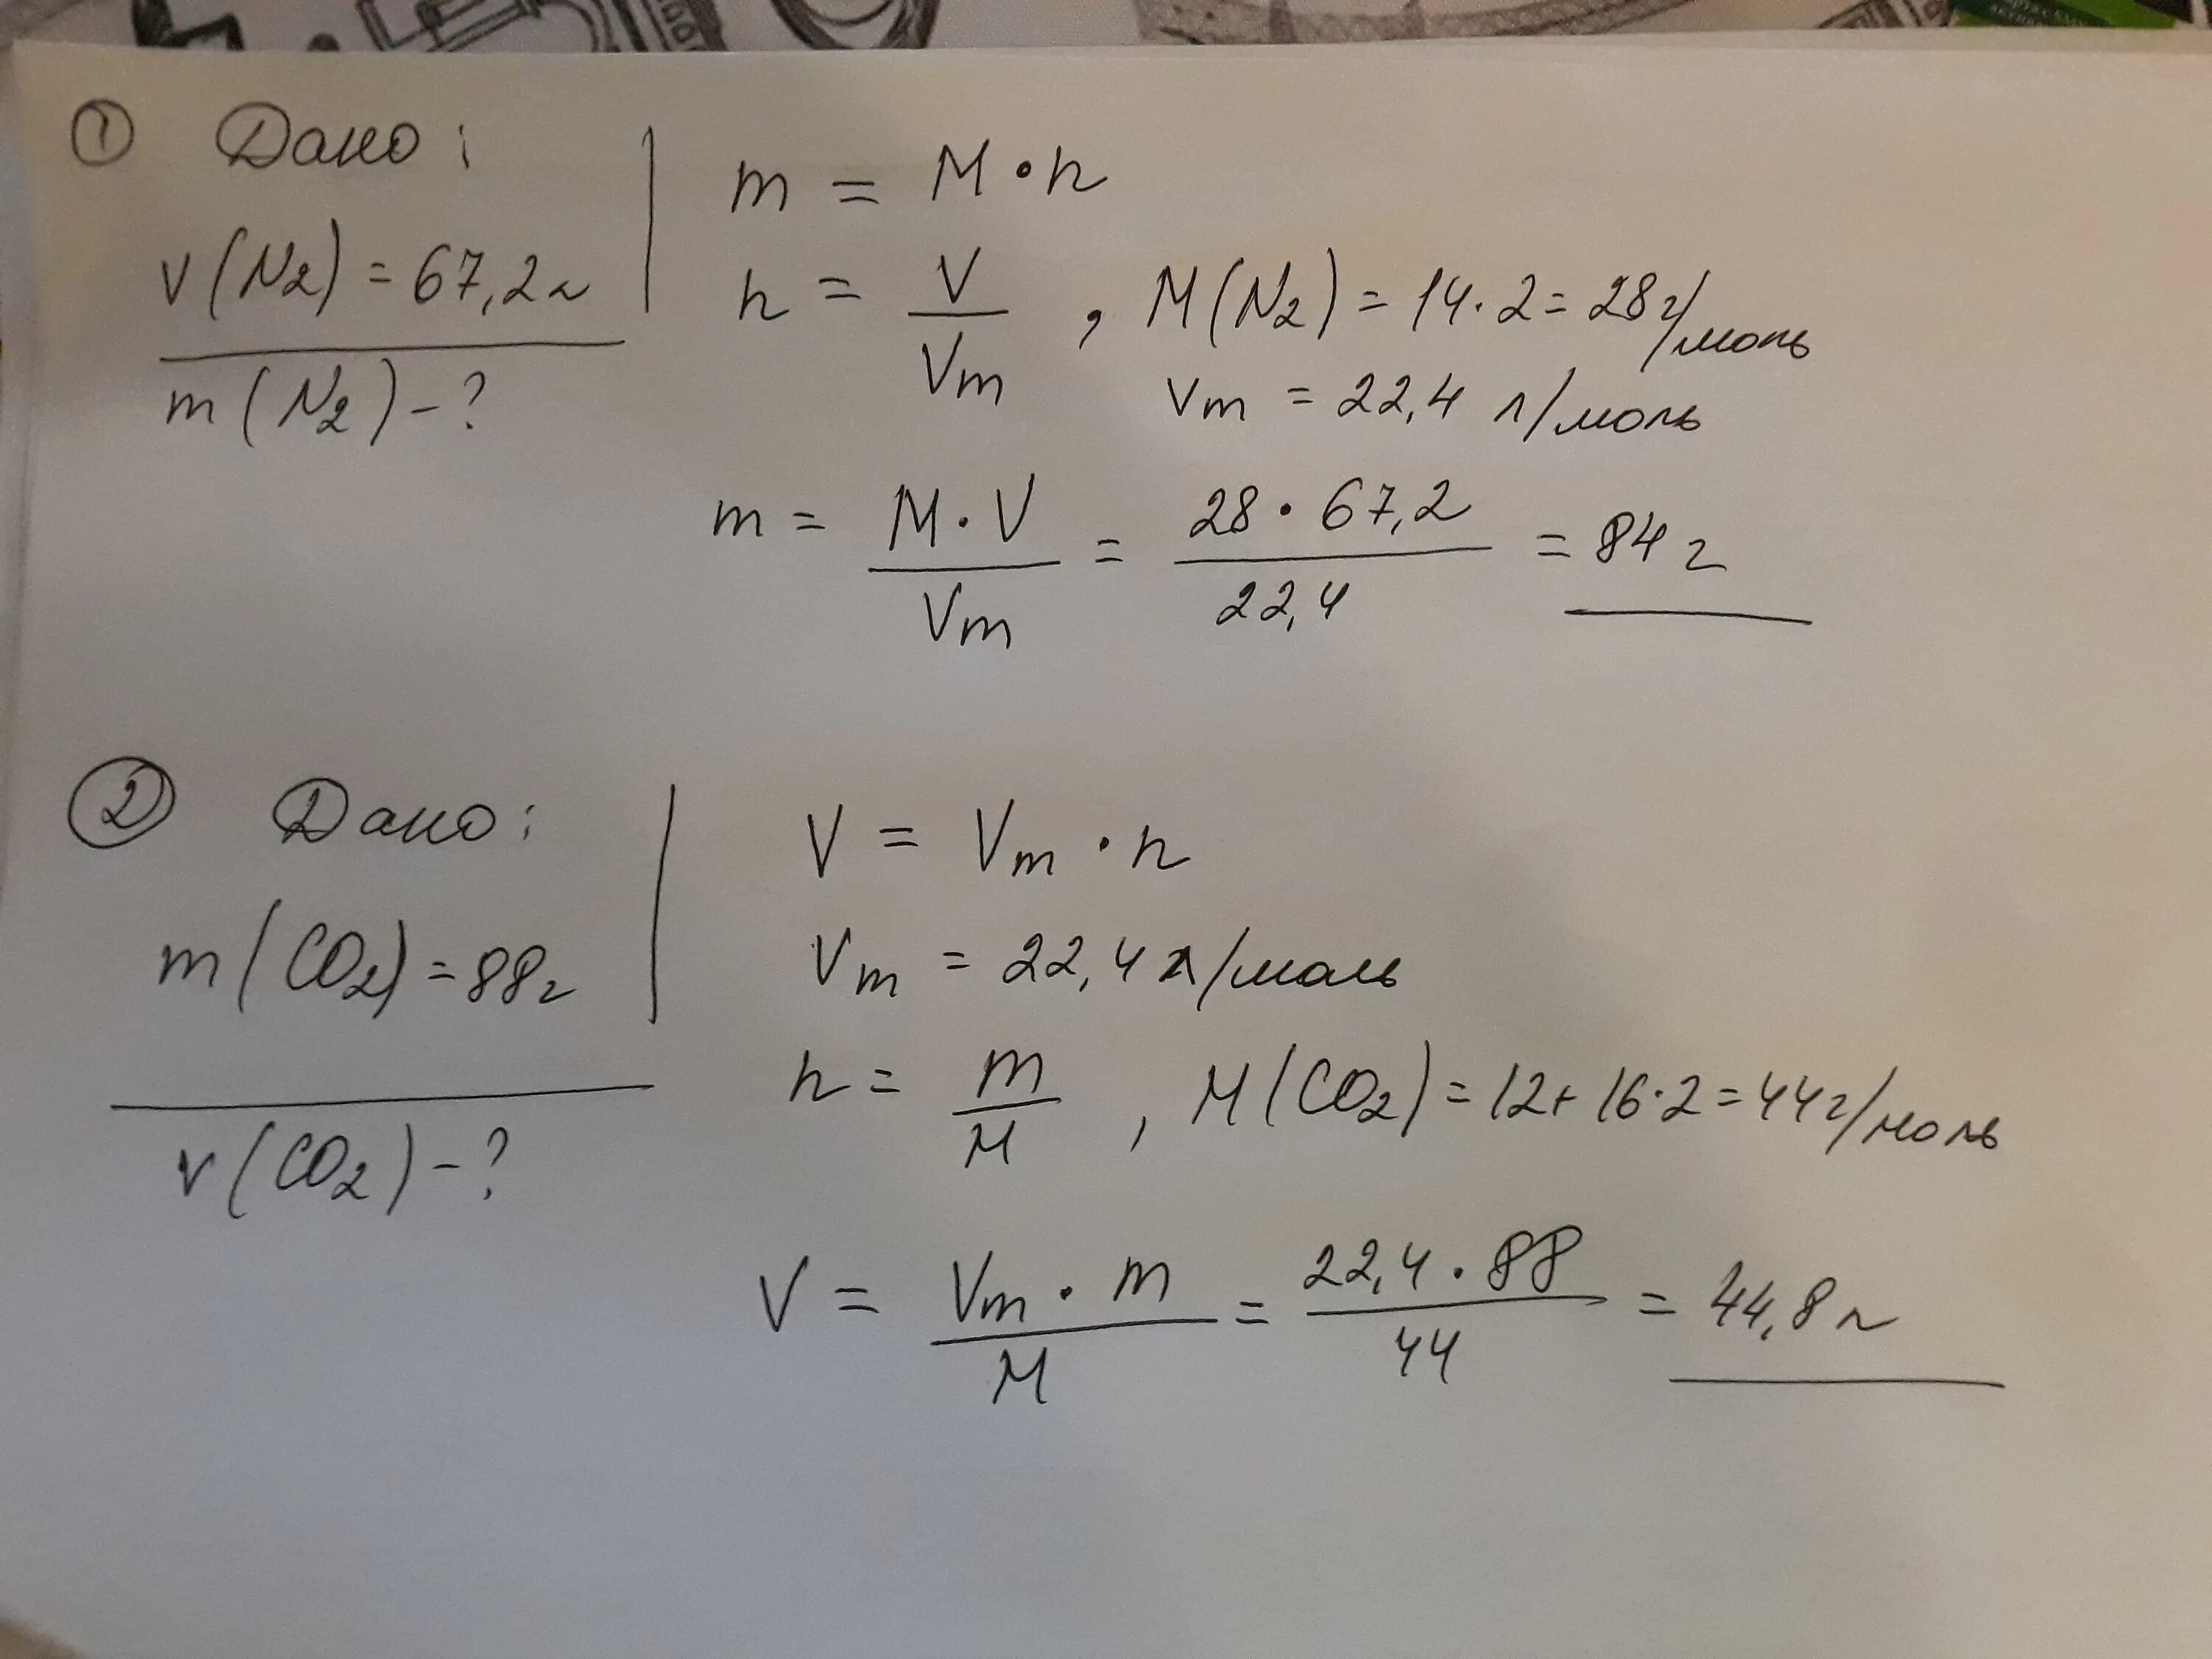 ① Дано:
V(N2) = 67,2 л
m(N2) - ?
m = M · n
n = V / Vm , M(N2) = 14 · 2 = 28 г/моль
Vm = 22,4 л/моль
m = M · V / Vm = 28 · 67,2 / 22,4 = 84 г
② Дано:
m(CO2) = 88 г
V(CO2) - ?
V = Vm · n
Vm = 22,4 л/моль
n = m / M , M(CO2) = 12 + 16 · 2 = 44 г/моль
V = Vm · m / M = 22,4 · 88 / 44 = 44,8 л